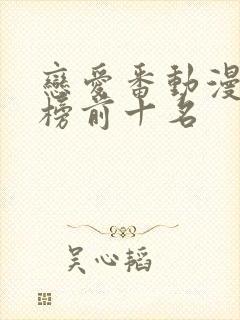 戀愛番動漫
榜前十名
吴心韬